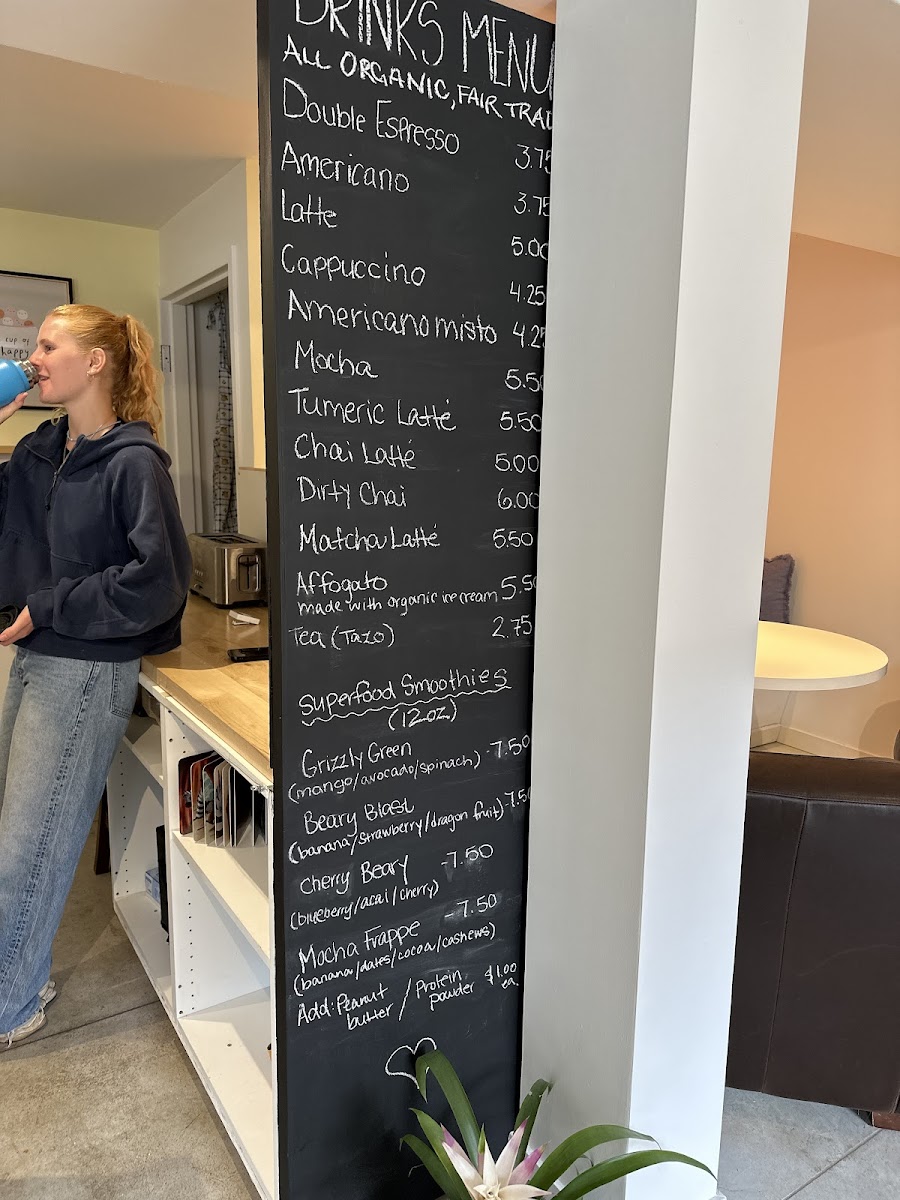 DRINKS MENU
ALL ORGANIC, FAIR TRAD
Double Espresso 3.75
Americano 3.75
Latte 5.00
Cappuccino 4.25
Americano misto 4.25
Mocha 5.50
Tumeric Latté 5.50
Chai Latté 5.00
Dirty Chai 6.00
Matcha Latté 5.50
Affogato 5.50
made with organic ice cream
Tea (Tazo) 2.75
Superfood Smoothies
(12oz)
Grizzly Green -7.50
(mango/avocado/spinach)
Beary Blast -7.50
(banana/strawberry/dragon fruit)
Cherry Beary -7.50
(blueberry/acai/cherry)
Mocha Frappe -7.50
(banana/dates/cocoa/cashews)
Add: Peanut butter / Protein powder $1.00 ea.
cup of
happy